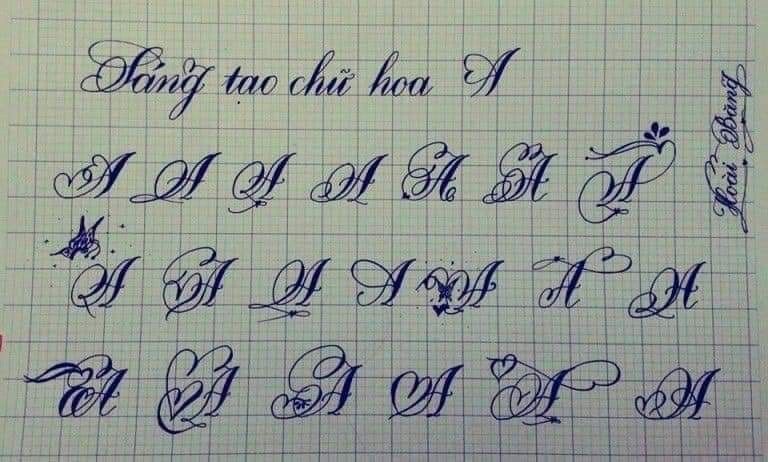 Sáng tạo chữ hoa A
A A A A A A A
A A A A A A A
A A A A A A
Hoài Bằng